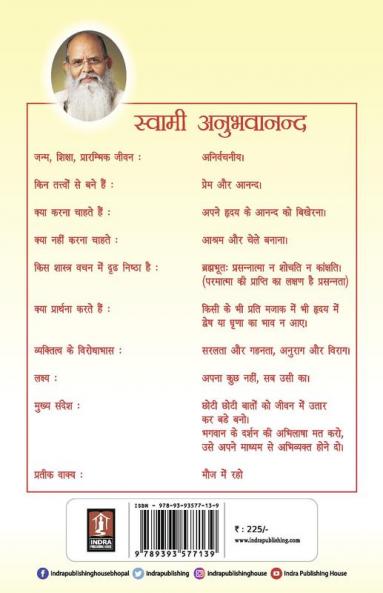 स्वामी अनुभवानन्द
जन्म, शिक्षा, प्रारम्भिक जीवन : अनिर्वचनीय।
किन तत्त्वों से बने हैं : प्रेम और आनन्द।
क्या करना चाहते हैं : अपने हृदय के आनन्द को बिखेरना।
क्या नहीं करना चाहते : आश्रम और चेले बनाना।
किस शास्त्र वचन में दृढ निष्ठा है : ब्रह्मभूतः प्रसन्नात्मा न शोचति न कांक्षति।
(परमात्मा की प्राप्ति का लक्षण है प्रसन्नता)
क्या प्रार्थना करते हैं : किसी के भी प्रति मजाक में भी हृदय में
द्वेष या घृणा का भाव न आए।
व्यक्तित्व के विरोधाभास : सरलता और गहनता, अनुराग और विराग।
लक्ष्य : अपना कुछ नहीं, सब उसी का।
मुख्य संदेश : छोटी छोटी बातों को जीवन में उतार
कर बडे बनो।
भगवान के दर्शन की अभिलाषा मत करो,
उसे अपने माध्यम से अभिव्यक्त होने दो।
प्रतीक वाक्य : मौज में रहो
ISBN - 978-93-93577-13-9
9 789393 577139
INDRA
PUBLISHING HOUSE
₹ : 225/-
www.indrapublishing.com
Indrapublishinghousebhopal Indrapublishing Indrapublishinghouse Indra Publishing House